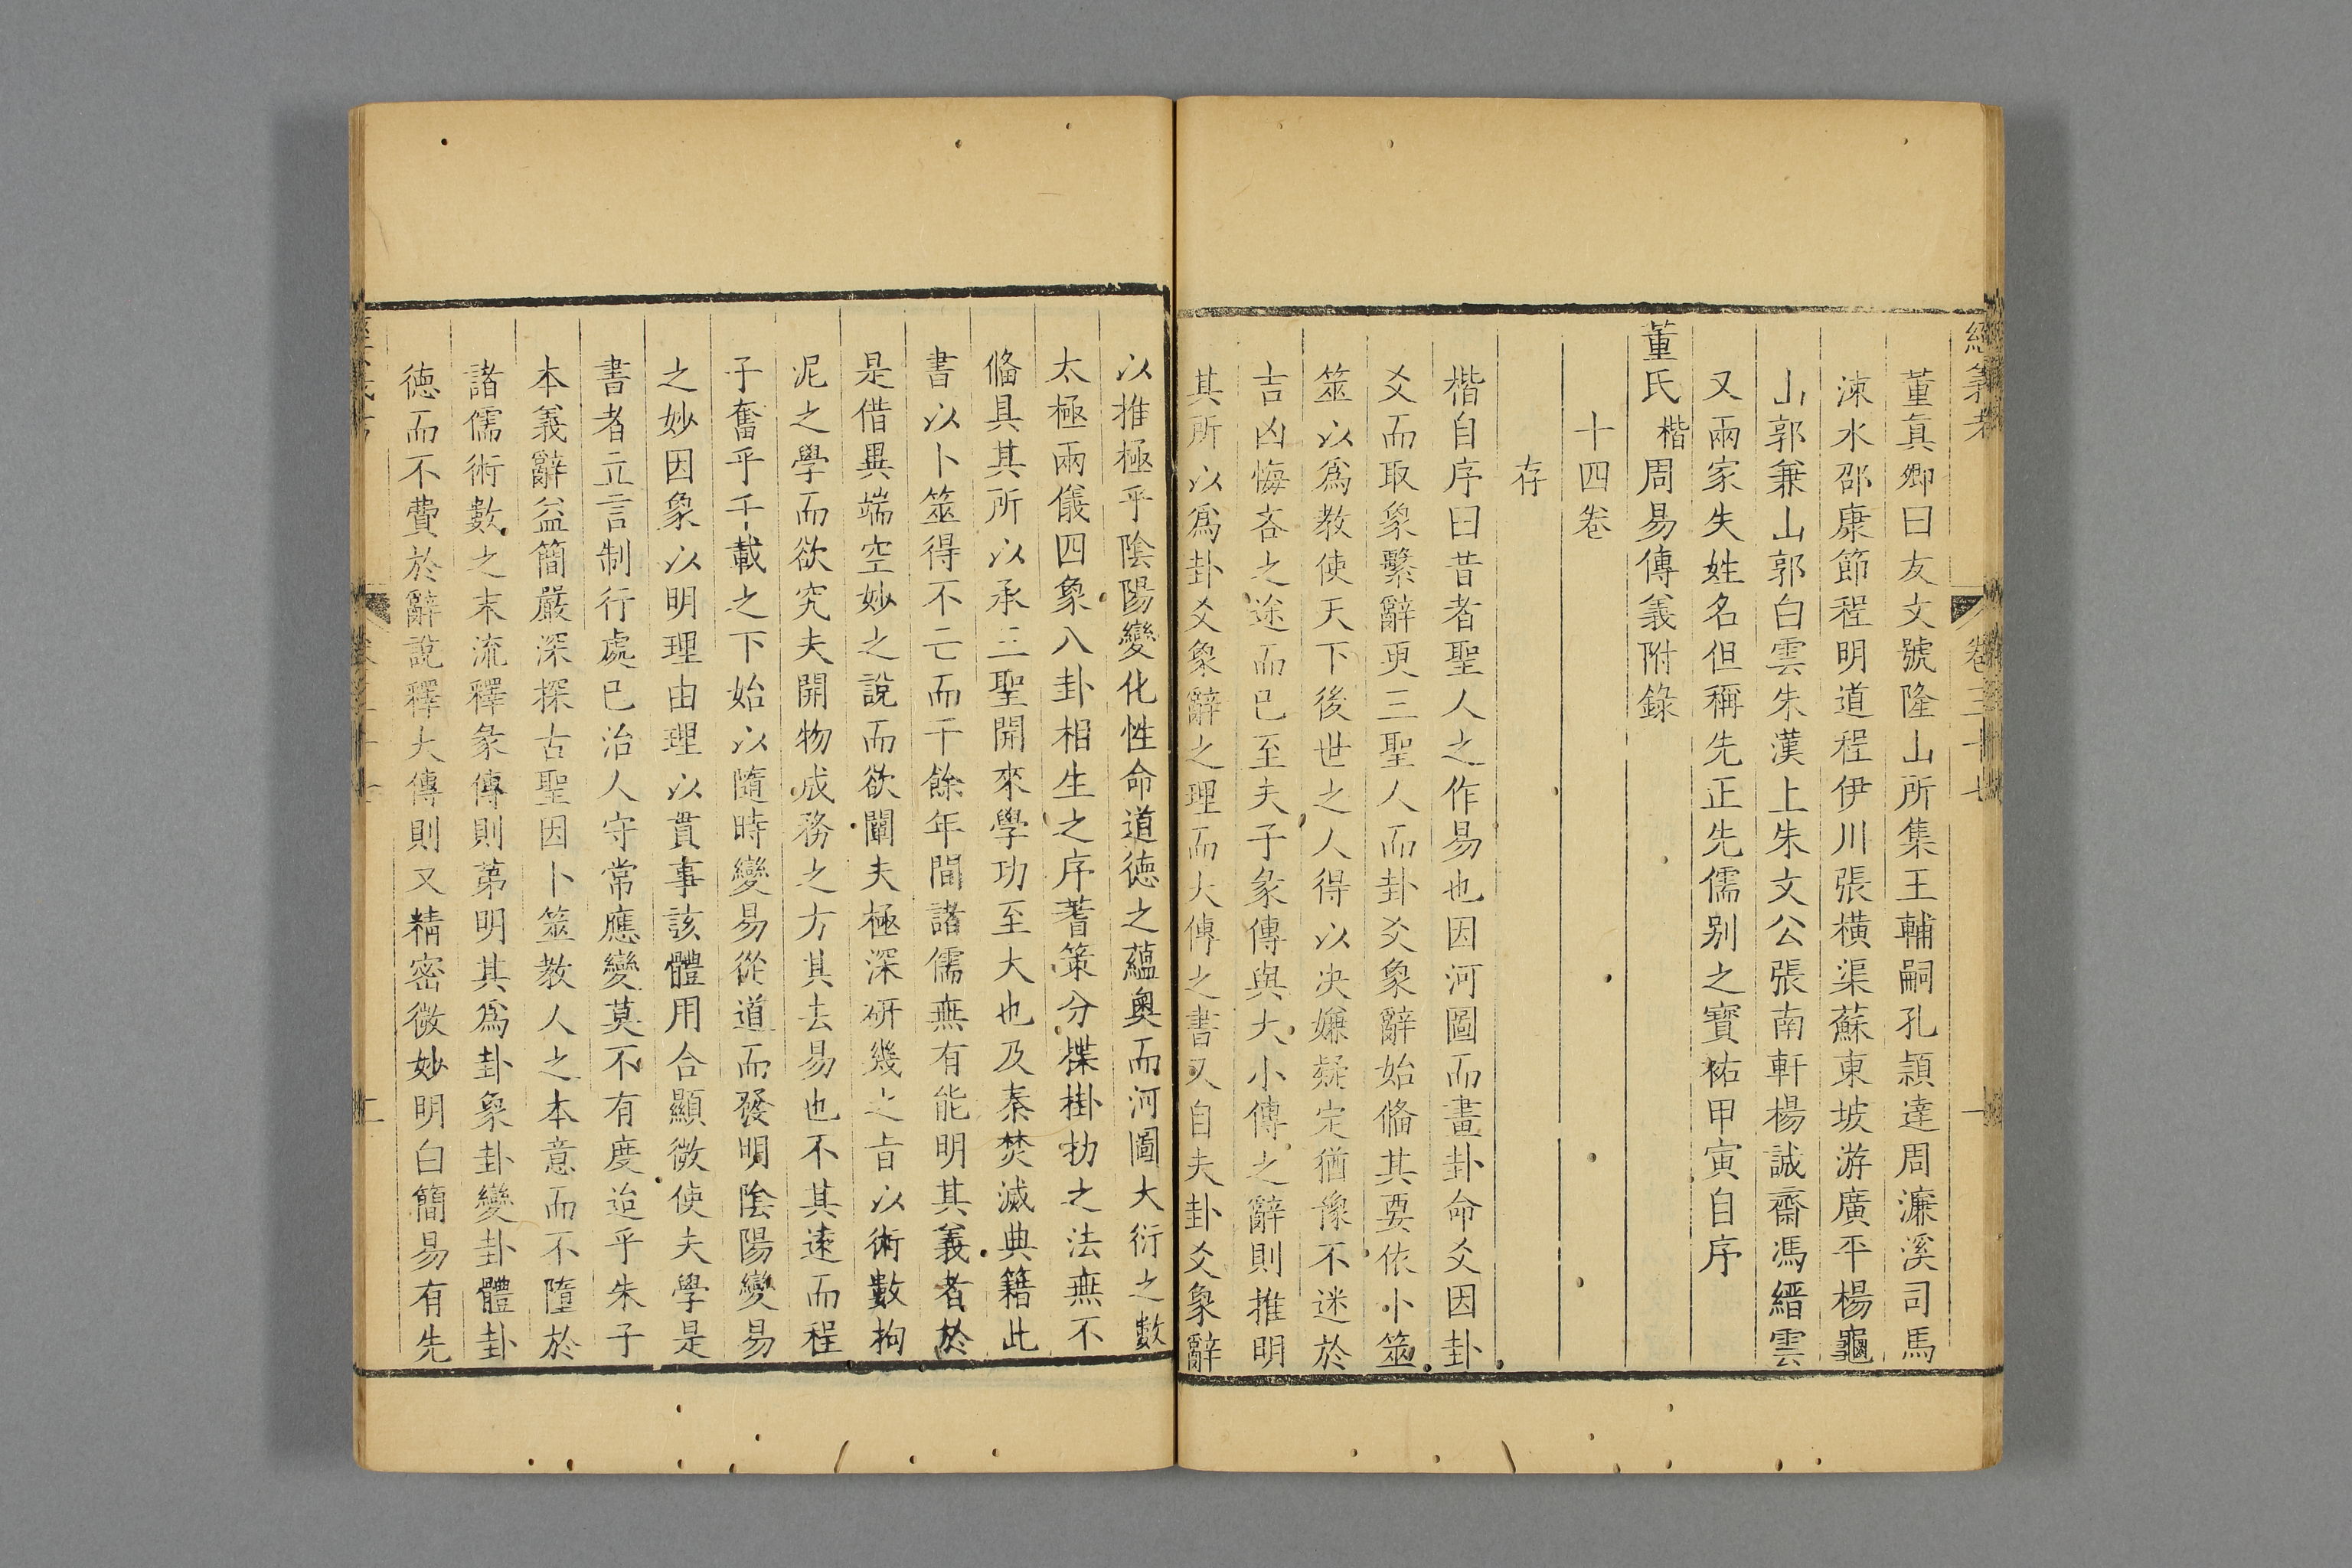 經義考 卷三十七 一
董真卿曰友文號隆山所集王輔嗣孔穎達周濂溪司馬
涑水邵康節程明道程伊川張橫渠蘇東坡游廣平楊龜
山郭兼山郭白雲朱漢上朱文公張南軒楊誠齋馮縉雲
又兩家失姓名但稱先正先儒别之寳祐甲寅自序
董氏楷周易傳義附錄
十四卷
存
楷自序曰昔者聖人之作易也因河圖而畫卦命爻因卦
爻而取象繫辭更三聖人而卦爻象辭始偹其要依小筮
筮以爲教使天下後世之人得以决嫌疑定猶豫不迷於
吉凶悔吝之途而已至夫子彖傳與大小傳之辭則推明
其所以爲卦爻象辭之理而大傳之書又自夫卦爻象辭
以推極乎陰陽變化性命道德之蘊奧而河圖大衍之數
太極兩儀四象八卦相生之序蓍策分揲掛扐之法無不
偹具其所以承三聖開來學功至大也及秦焚滅典籍此
書以卜筮得不亡而千餘年間諸儒無有能明其義者於
是借異端空妙之說而欲闡夫極深硏幾之㫖以術數拘
泥之學而欲究夫開物成務之方其去易也不其遠而程
子奮乎千載之下始以隨時變易從道而發明陰陽變易
之妙因象以明理由理以貫事該體用合顯微使夫學是
書者立言制行處已治人守常應變莫不有度迨乎朱子
本義辭益簡嚴深探古聖因卜筮教人之本意而不墮於
諸儒術數之末流釋彖傳則第明其爲卦象卦變卦體卦
德而不費於辭說釋大傳則又精密微妙明白簡易有先